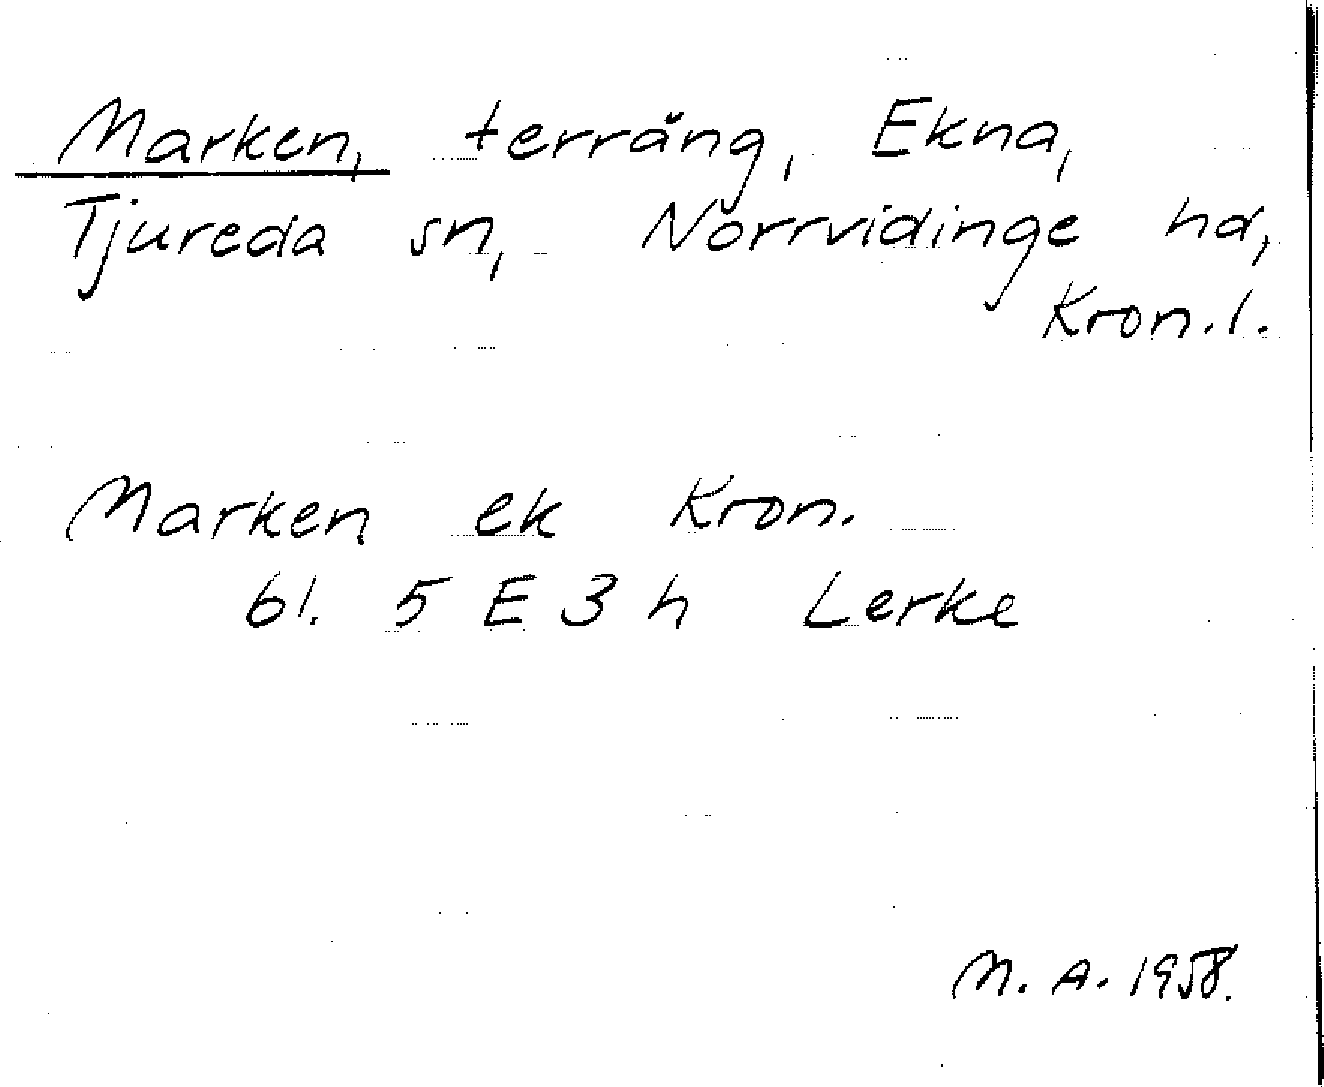 Marken, terräng, Ekna,
Tjureda sn, Norrvidinge hd,
Kron.l.
Marken ek Kron.
bl. 5 E 3 h Lerke
M. A. 1958.